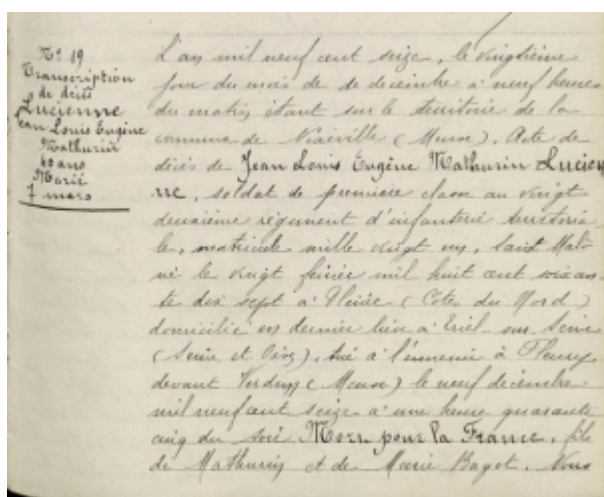 N° 19
Transcription
de décès
Lucienne
Jean Louis Eugène
Mathurin
40 ans
Marié
7 mars
L'an mil neuf cent seize, le vingtième
jour du mois de de décembre à neuf heures
du matin étant sur le territoire de la
commune de (Meuse). Acte de
décès de Jean Louis Eugène Mathurin Lucien
ne, soldat de première classe au vingt
deuxième régiment d'infanterie territoria
le, matricule mille vingt un, Saint Malo
né le vingt février mil huit cent soixan
te dix sept à (Côtes du Nord)
domicilié en dernier lieu à Triel sur Seine
(Seine et Oise), tué à l'ennemi à Fleury
devant Verdun (Meuse) le neuf décembre
mil neuf cent seize à une heure quarante
cinq du soir Mort pour la France, fils
de Mathurin et de Marie Bagot. Nous